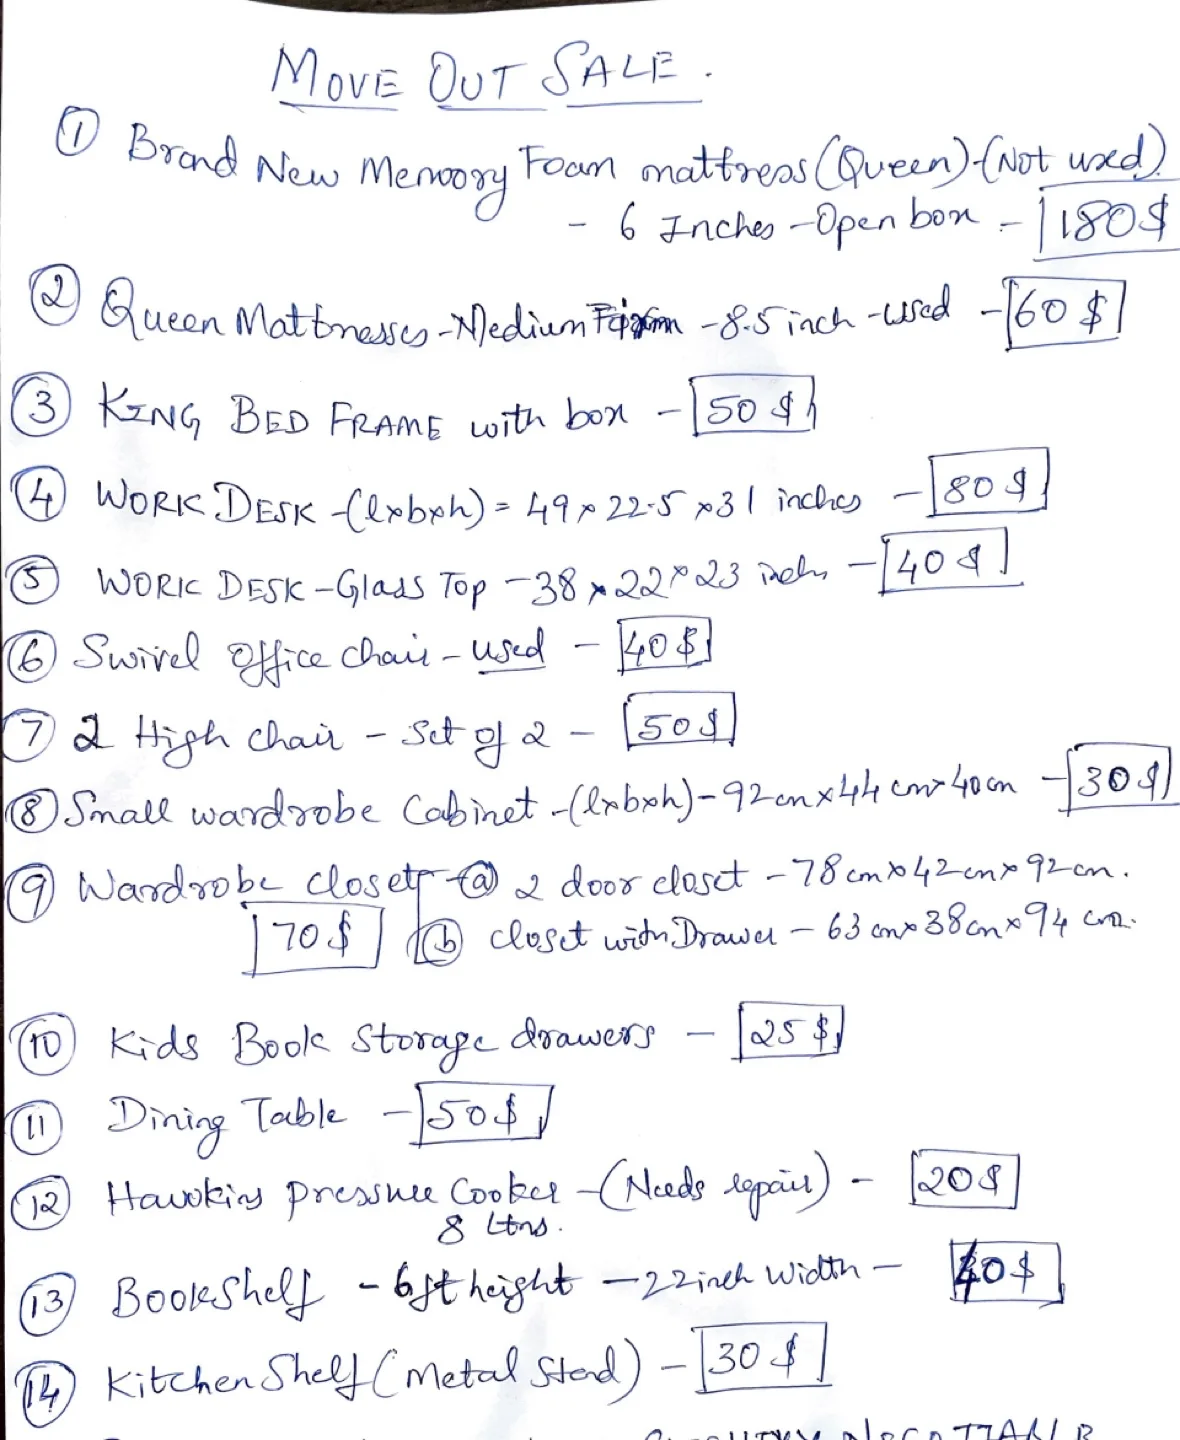 MOVE OUT SALE.
① Brand New Memoory Foam mattress (Queen) - (Not used)
- 6 Inches - Open box - 180$
② Queen Mattresses - Medium Firm - 8.5 inch - used - 60$
③ KING BED FRAME with box - 50$
④ WORK DESK - (lxbxh) = 49 x 22.5 x 31 inches - 80$
⑤ WORK DESK - Glass Top - 38 x 22 x 23 inches - 40$
⑥ Swivel office chair - used - 40$
⑦ 2 High chair - Set of 2 - 50$
⑧ Small wardrobe Cabinet - (lxbxh) - 92cm x 44 cm x 40cm - 30$
⑨ Wardrobe closet ⓐ 2 door closet - 78cm x 42cm x 92cm.
70$ ⓑ closet with Drawer - 63cm x 38cm x 94 cm.
⑩ Kids Book Storage drawers - 25$
⑪ Dining Table - 50$
⑫ Hawkins Pressure Cooker - (Needs repair) - 20$
8 Ltrs.
⑬ BookShelf - 6ft height - 22 inch width - 40$
⑭ Kitchen Shelf (Metal Stand) - 30$